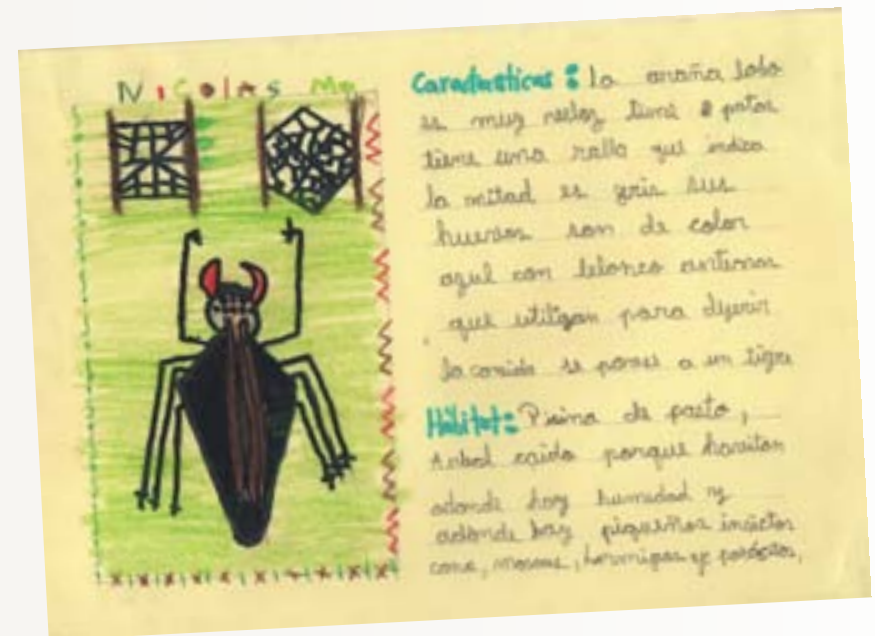 NICOlAS Mo
Caracteristicas: la araña lobo
es muy veloz tiene 8 patas
tiene una rallo que indica
la mitad es gris sus
huevos son de color
azul con blanco antenas
que utilizan para dijerir
la comida se parese a un tigre
Hábitat: de pasto,
Arbol caido porque havitan
adonde hay humedad y
adonde hay piqueños insectos
como, moscas, hormigas y parásitos,